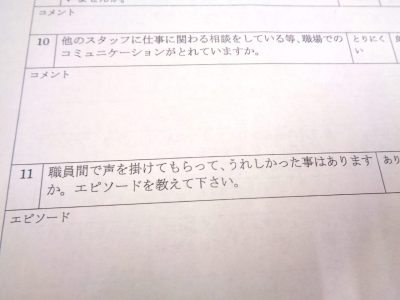 コメント
10 他のスタッフに仕事に関わる相談をしている等、職場での
コミュニケーションがとれていますか。
とりにく
い
コメント
11 職員間で声を掛けてもらって、うれしかった事はあります
か。エピソードを教えて下さい。
あり
エピソード